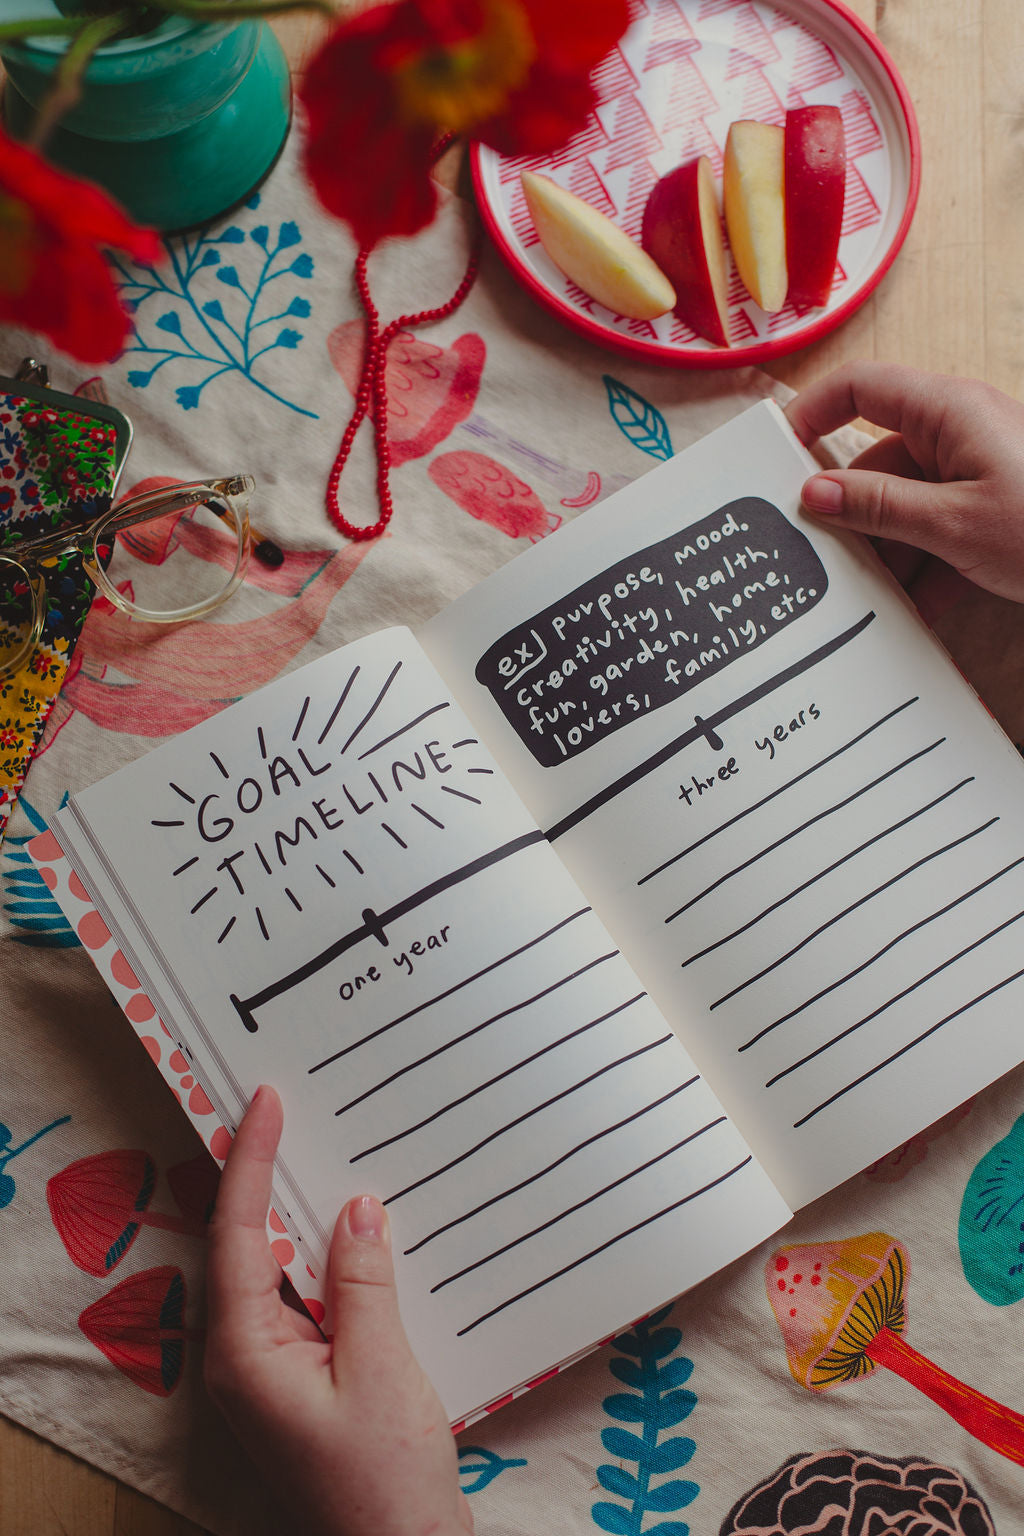 GOAL
TIMELINE
one year
ex) purpose, mood.
creativity, health,
fun, garden, home,
lovers, family, etc.
three years